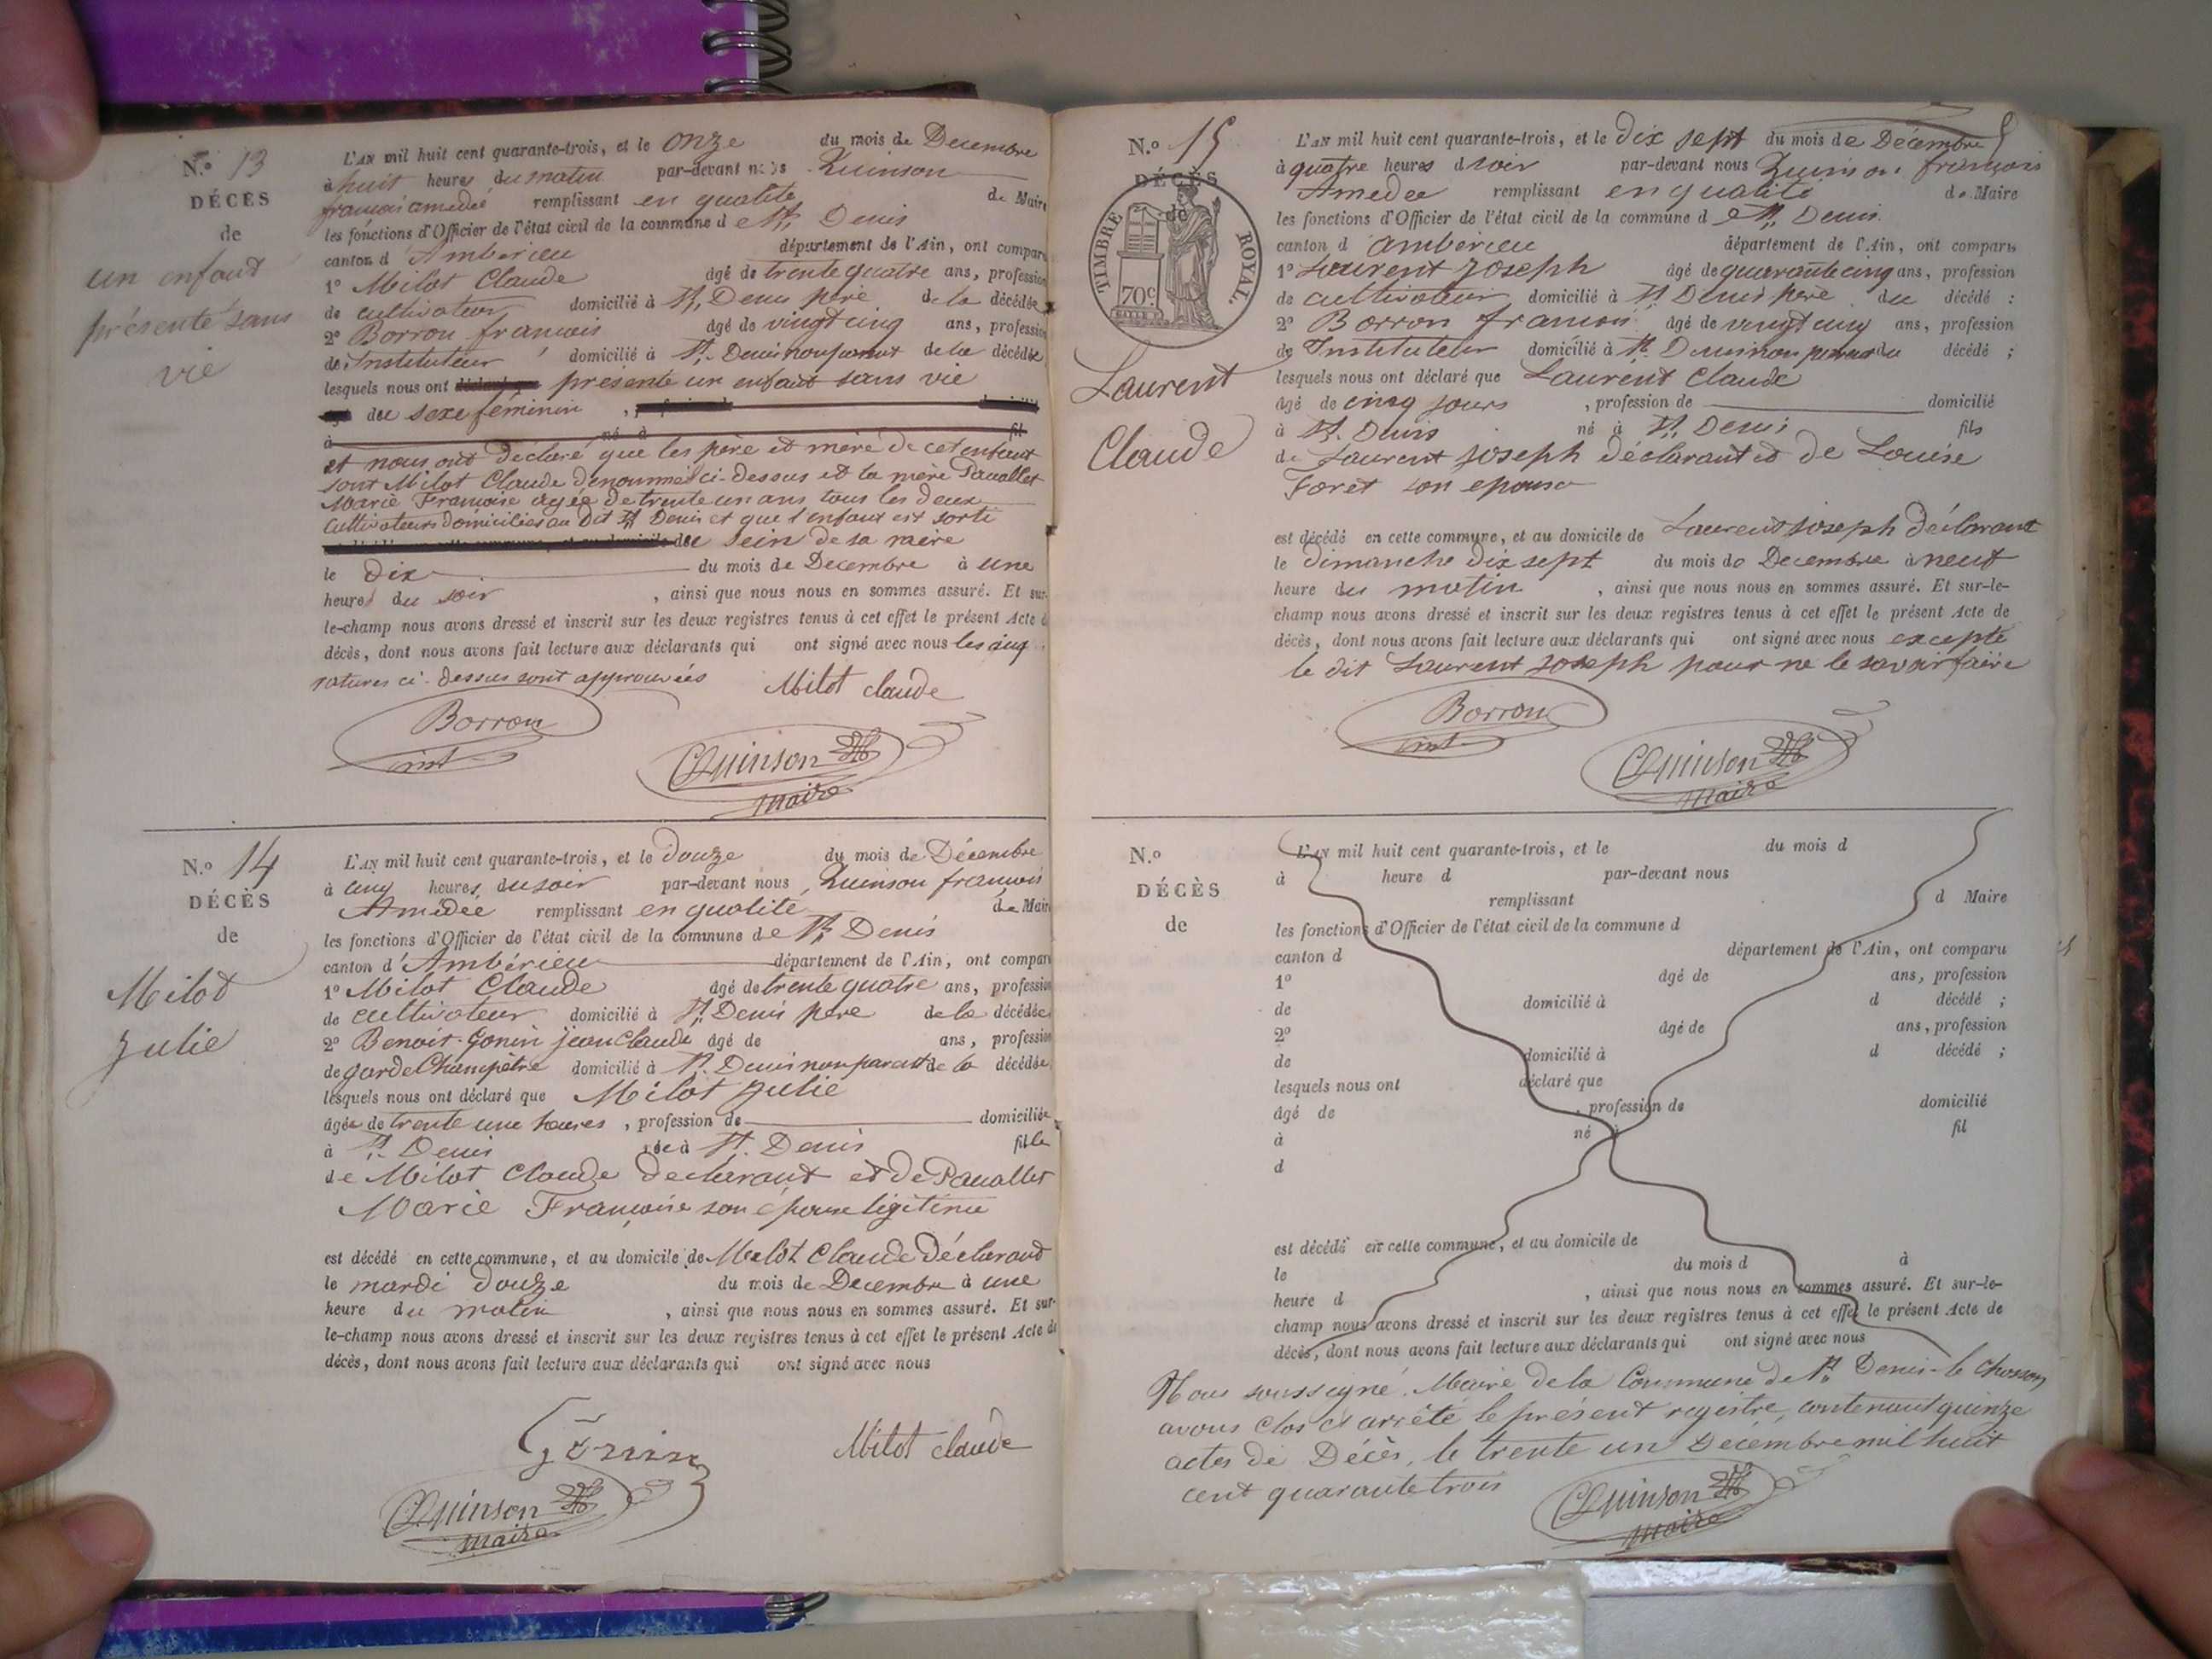 N.º 13
DÉCÈS
de
un enfant
présenté sans
vie
L'AN mil huit cent quarante-trois, et le onze du mois de Decembre
à huit heures du matin par-devant nous Quinson
françois amedée remplissant en qualité de Maire
les fonctions d'Officier de l'état civil de la commune de St. Denis
canton d'Ambérieu département de l'Ain, ont comparu
1º Milot Claude âgé de trente quatre ans, profession
de cultivateur domicilié à St. Denis père de la décédée
2º Borron françois âgé de vingt cinq ans, profession
de Instituteur domicilié à St. Denis non parent de la décédée
lesquels nous ont présenté un enfant sans vie
du sexe féminin
à né à fil
et nous ont déclaré que les père et mère de cet enfant
sont Milot Claude dénommé ci-dessus et la mère Pavallet
Marie Françoise agée de trente un ans tous les deux
cultivateurs domiciliés au dit St Denis et que l'enfant est sorti
du sein de sa mère
le dix du mois de Decembre à une
heure du soir, ainsi que nous nous en sommes assuré. Et sur-
le-champ nous avons dressé et inscrit sur les deux registres tenus à cet effet le présent Acte de
décès, dont nous avons fait lecture aux déclarants qui ont signé avec nous les cinq
ratures ci-dessus sont approuvées Milot claude
Borron
inst
Quinson
maire
N.º 14
DÉCÈS
de
Milot
Julie
L'AN mil huit cent quarante-trois, et le douze du mois de Décembre
à cinq heures du soir par-devant nous Quinson françois
Amédée remplissant en qualité de Maire
les fonctions d'Officier de l'état civil de la commune de St. Denis
canton d'Ambérieu département de l'Ain, ont comparu
1º Milot Claude âgé de trente quatre ans, profession
de cultivateur domicilié à St. Denis père de la décédée
2º Benoit-Gonin jean Claude âgé de ans, profession
de garde Champêtre domicilié à St. Denis non parent de la décédée
lesquels nous ont déclaré que Milot Julie
âgée de trente une heures, profession de domiciliée
à St. Denis née à St. Denis fille
de Milot Claude declarant et de Pavallet
Marie Françoise son épouse légitime
est décédé en cette commune, et au domicile de Milot Claude Déclarant
le mardi douze du mois de Decembre à une
heure du matin, ainsi que nous nous en sommes assuré. Et sur-
le-champ nous avons dressé et inscrit sur les deux registres tenus à cet effet le présent Acte de
décès, dont nous avons fait lecture aux déclarants qui ont signé avec nous
Gonin Milot claude
Quinson
maire
N.º 15
DÉCÈS
de
TIMBRE ROYAL.
70c
Laurent
Claude
L'AN mil huit cent quarante-trois, et le dix sept du mois de Décembre
à quatre heures d soir par-devant nous Quinson françois
Amedée remplissant en qualité de Maire
les fonctions d'Officier de l'état civil de la commune de St. Denis
canton d'ambérieu département de l'Ain, ont comparu
1º Laurent Joseph âgé de quarante cinq ans, profession
de cultivateur domicilié à St Denis père du décédé ;
2º Borron françois âgé de vingt cinq ans, profession
de Instituteur domicilié à St. Denis non parent du décédé ;
lesquels nous ont déclaré que Laurent Claude
âgé de cinq jours, profession de domicilié
à St. Denis né à St. Denis fils
de Laurent Joseph déclarant et de Louise
Foret son epouse
est décédé en cette commune, et au domicile de Laurent joseph déclarant
le dimanche dix sept du mois de Decembre à neuf
heure du matin, ainsi que nous nous en sommes assuré. Et sur-le-
champ nous avons dressé et inscrit sur les deux registres tenus à cet effet le présent Acte de
décès, dont nous avons fait lecture aux déclarants qui ont signé avec nous excepté
le dit Laurent Joseph pour ne le savoir faire
Borron
inst
Quinson
maire
N.º
DÉCÈS
de
L'AN mil huit cent quarante-trois, et le du mois d
à heure d par-devant nous
remplissant d Maire
les fonctions d'Officier de l'état civil de la commune d
canton d département de l'Ain, ont comparu
1º âgé de ans, profession
de domicilié à d décédé ;
2º âgé de ans, profession
de domicilié à d décédé ;
lesquels nous ont déclaré que
âgé de , profession de domicilié
à né à fil
d
est décédé en cette commune, et au domicile de
le du mois d à
heure d , ainsi que nous nous en sommes assuré. Et sur-le-
champ nous avons dressé et inscrit sur les deux registres tenus à cet effet le présent Acte de
décès, dont nous avons fait lecture aux déclarants qui ont signé avec nous
Nous soussigné, Maire de la Commune de St. Denis-le Chosson
avons clos et arrêté le présent registre, contenant quinze
actes de Décès, le trente un Décembre mil huit
cent quarante trois
Quinson
maire